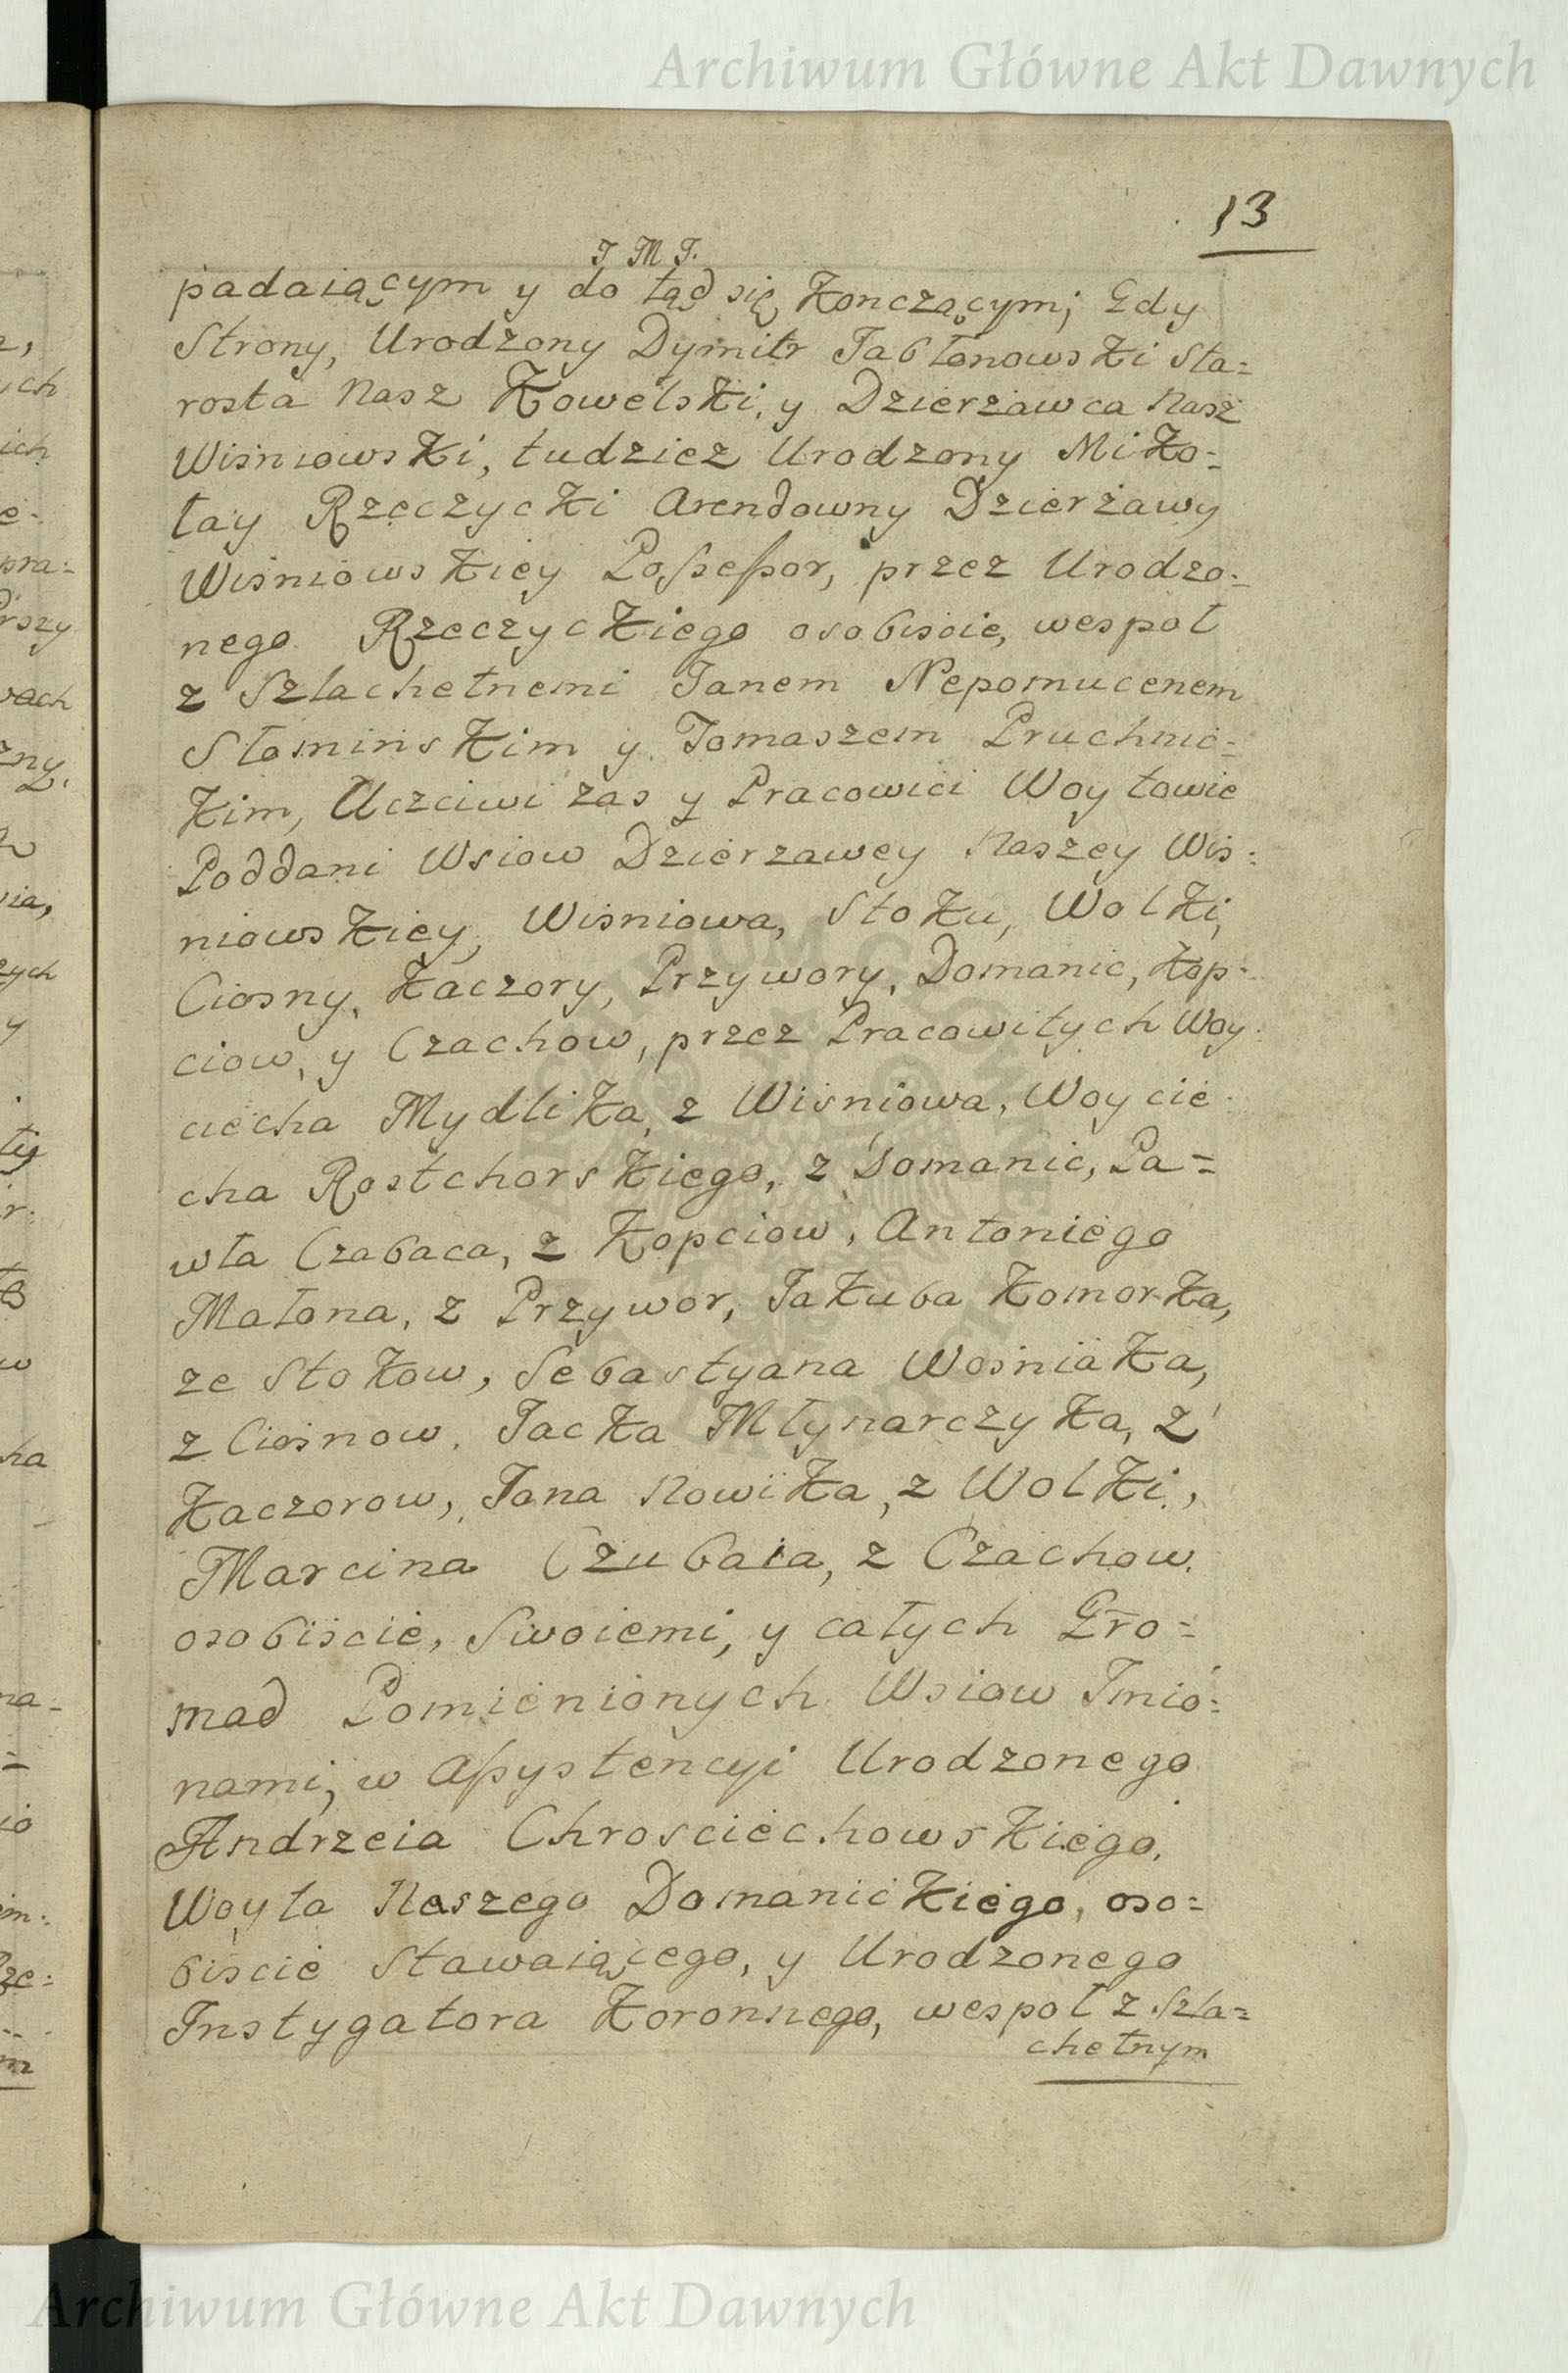 Archiwum Główne Akt Dawnych
13
J M J.
padaiącym y do tąd się Konczącym; Gdy
Strony, Urodzony Dymitr Jabłonowski Sta=
rosta Nasz Kowelski, y Dzierżawca Nasz
Wiśniowski, tudziez Urodzony Miko=
łay Rzeczycki Arendowny Dzierżawy
Wiśniowskiey Possessor, przez Urodzo=
nego Rzeczyckiego osobiscie, wespoł
z Szlachetnemi Janem Nepomucenem
Słominskim y Tomaszem Pruchnic=
kim, Uczciwi zas y Pracowici Woytowie
Poddani Wsiow Dzierzawey Naszey Wis=
niowskiey, Wiśniowa, Stoku, Wolki,
Ciosny, Kaczory, Przywory, Domanic, Kop=
ciow, y Czachow, przez Pracowitych Woy=
ciecha Mydlika, z Wiśniowa, Woycie=
cha Rostchorskiego, z Domanic, Pa=
wła Czabaca, z Kopciow, Antoniego
Matona, z Przywor, Jakuba Komorka,
ze Stokow, Sebastyana Wośniaka,
z Ciosnow, Jacka Młynarczyka, z
Kaczorow, Jana Nowika, z Wolki,
Marcina Czubaia, z Czachow.
osobiscie, Swoiemi, y całych Gro=
mad Pomienionych Wsiow Imio=
nami, w Assystencyi Urodzonego
Andrzeia Chrosciechowskiego,
Woyta Naszego Domanickiego, oso=
biscie Stawaiącego, y Urodzonego
Instygatora Koronnego, wespoł z Szla=
chetnym
Archiwum Główne Akt Dawnych